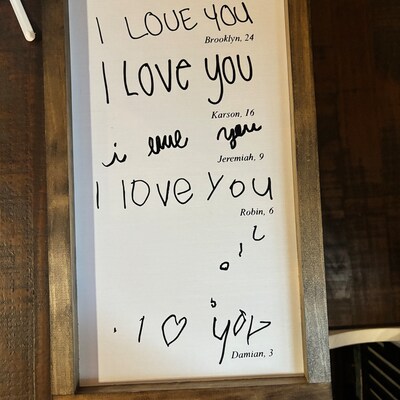 I LOVE YOU
Brooklyn, 24
I Love you
Karson, 16
i love you
Jeremiah, 9
I lOVE YOU
Robin, 6
I ♡ you
Damian, 3